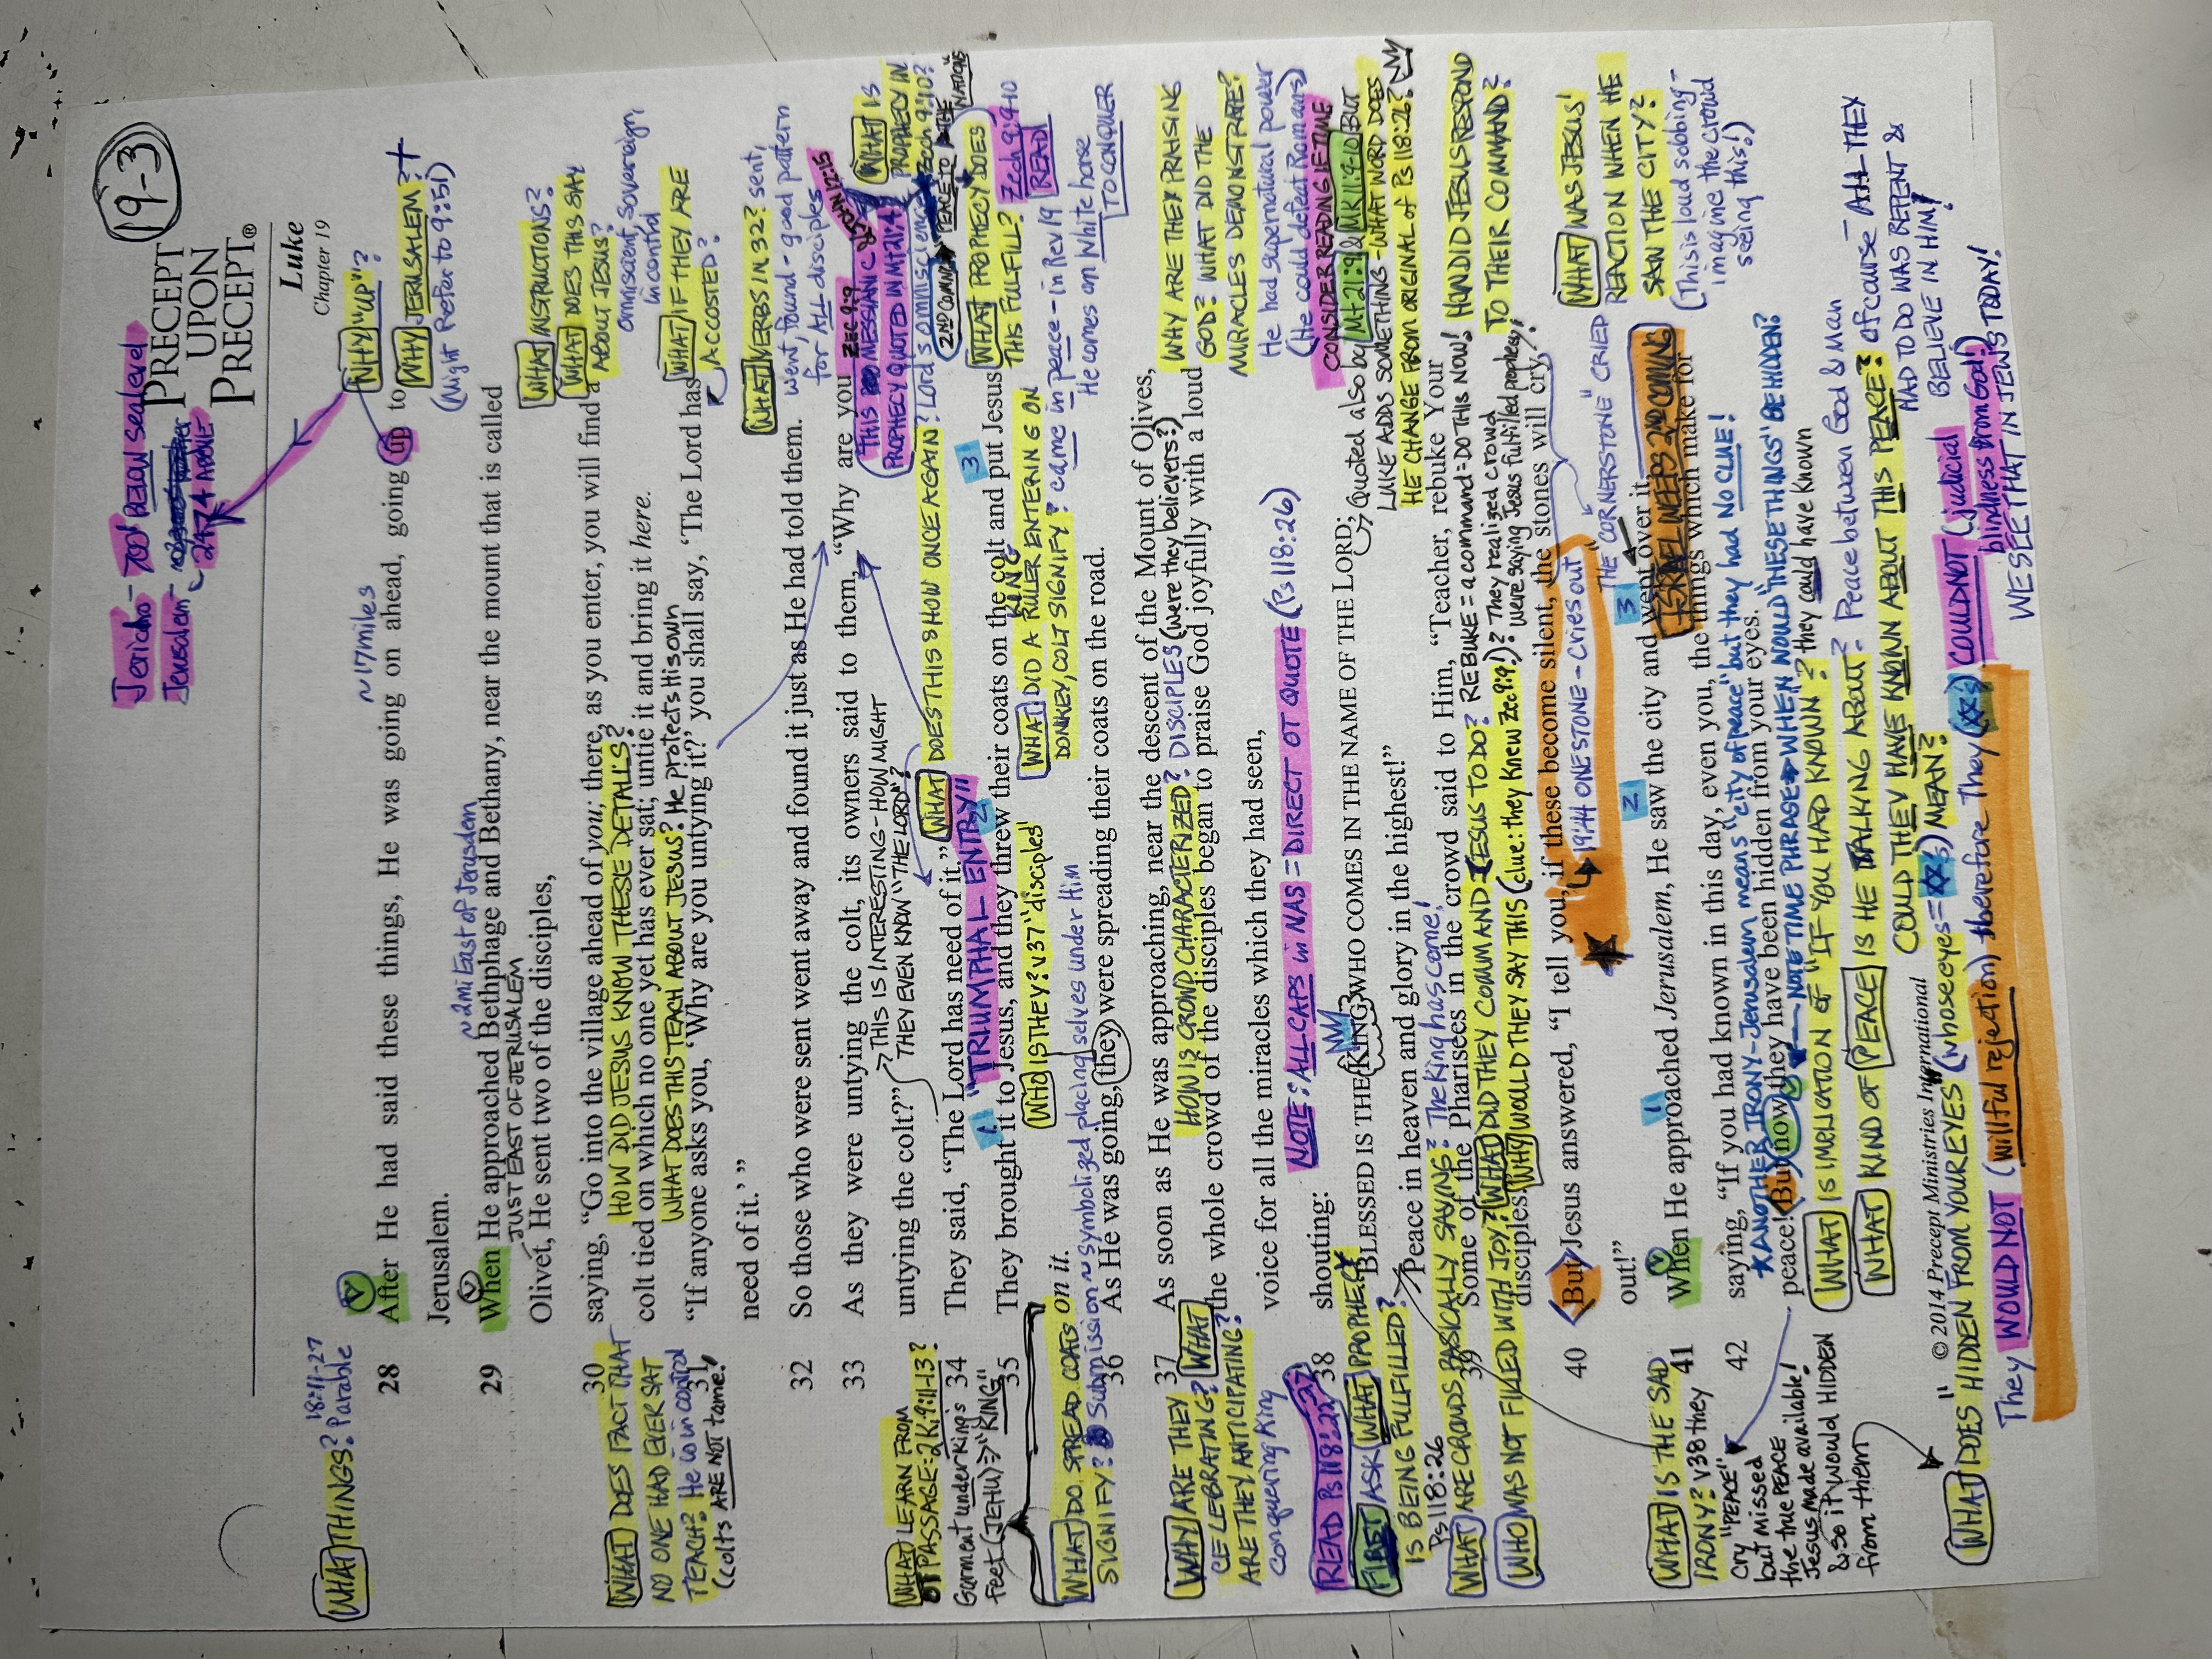 19-3
Jericho - 700' BELOW sea level
Jerusalem -
2474 ABOVE
PRECEPT
UPON
PRECEPT®
Luke
Chapter 19
18:11-27
WHAT THINGS? Parable
~17 miles
WHY "UP"?
28 After He had said these things, He was going on ahead, going up to
Jerusalem.
WHY JERUSALEM?
(Might Refer to 9:51)
~2mi East of Jerusalem
29 When He approached Bethphage and Bethany, near the mount that is called
JUST EAST OF JERUSALEM
Olivet, He sent two of the disciples,
WHAT INSTRUCTIONS?
WHAT DOES THIS SAY
ABOUT JESUS?
omniscient, sovereign,
in control
30 saying, "Go into the village ahead of you; there, as you enter, you will find a
HOW DID JESUS KNOW THESE DETAILS?
colt tied on which no one yet has ever sat; untie it and bring it here.
WHAT DOES FACT THAT
NO ONE HAD EVER SAT
TEACH? He is in control
(colts ARE NOT tame!
WHAT DOES THIS TEACH ABOUT JESUS? He protects His own
WHAT IF THEY ARE
ACCOSTED?
31 "If anyone asks you, 'Why are you untying it?' you shall say, 'The Lord has
need of it.' "
WHAT VERBS IN 32? sent,
went, found - good pattern
for ALL disciples
32 So those who were sent went away and found it just as He had told them.
33 As they were untying the colt, its owners said to them, "Why are you
THIS IS INTERESTING - HOW MIGHT
untying the colt?"
THEY EVEN KNOW "THE LORD"?
ZEC 9:9
THIS MESSIANIC
PROPHECY QUOTED IN MT 21:4
& JOHN 12:15
WHAT IS
PROPHECY IN
Zech 9:10?
PEACE TO THE
NATIONS
2ND COMING
WHAT LEARN FROM
OT PASSAGE: 2Ki 9:11-13?
Garment under King's
feet (JEHU) => "KING"
34 They said, "The Lord has need of it."
WHAT DOES THIS SHOW ONCE AGAIN? Lord's omniscience
"TRIUMPHAL ENTRY"
1 2 3
WHAT PROPHECY DOES
THIS FULFILL?
Zech 9:9-10
READ
35 They brought it to Jesus, and they threw their coats on the colt and put Jesus
on it.
WHO IS THEY? v37 "disciples"
WHAT DID A RULER ENTERING ON
KING
DONKEY, COLT SIGNIFY? came in peace - in Rev 19
He comes on White horse
TO CONQUER
WHAT DO SPREAD COATS
SIGNIFY? Submission ~ symbolized placing selves under Him
36 As He was going, they were spreading their coats on the road.
37 As soon as He was approaching, near the descent of the Mount of Olives,
HOW IS CROWD CHARACTERIZED? DISCIPLES (were they believers?)
the whole crowd of the disciples began to praise God joyfully with a loud
voice for all the miracles which they had seen,
WHY ARE THEY
CELEBRATING? WHAT
ARE THEY ANTICIPATING?
Conquering King
WHY ARE THEY PRAISING
GOD? WHAT DID THE
MIRACLES DEMONSTRATE?
He had supernatural power
(He could defeat Romans)
NOTE: ALL CAPS in NAS = DIRECT OT QUOTE (Ps 118:26)
READ Ps 118:22-27
38 shouting:
CONSIDER READING IF TIME
Quoted also by Mt 21:9 & MK 11:9-10 BUT
LUKE ADDS SOMETHING - WHAT WORD DOES
HE CHANGE FROM ORIGINAL of Ps 118:26?
BLESSED IS THE KING WHO COMES IN THE NAME OF THE LORD;
Peace in heaven and glory in the highest!"
FIRST ASK WHAT PROPHECY
IS BEING FULFILLED?
Ps 118:26
WHAT ARE CROWDS BASICALLY SAYING? The King has come!
39 Some of the Pharisees in the crowd said to Him, "Teacher, rebuke Your
disciples."
WHO WAS NOT FILLED WITH JOY?
WHAT DID THEY COMMAND JESUS TO DO? REBUKE = a command = DO THIS NOW!
HOW DID JESUS RESPOND
TO THEIR COMMAND?
WHY WOULD THEY SAY THIS (clue: they knew Zec 9:9!)? They realized crowd
were saying Jesus fulfilled prophecy!
40 But Jesus answered, "I tell you, if these become silent, the stones will cry
out!"
19:44 ONE STONE - Cries out
THE "CORNERSTONE" CRIED
WHAT WAS JESUS'
REACTION WHEN HE
SAW THE CITY?
(This is loud sobbing -
imagine the crowd
seeing this!)
1 2 3
41 When He approached Jerusalem, He saw the city and wept over it,
ISRAEL WEEPS 2ND COMING
42 saying, "If you had known in this day, even you, the things which make for
ANOTHER IRONY - Jerusalem means "city of peace" but they had NO CLUE!
peace! But now they have been hidden from your eyes.
NOTE TIME PHRASE => WHEN WOULD "THESE THINGS" BE HIDDEN?
WHAT IS THE SAD
IRONY? v38 they
cry "PEACE"
but missed
the true PEACE
Jesus made available!
& so it would HIDDEN
from them
WHAT IS IMPLICATION OF "IF YOU HAD KNOWN"? they could have known
WHAT KIND OF PEACE IS HE TALKING ABOUT? Peace between God & Man
COULD THEY HAVE KNOWN ABOUT THIS PEACE? of course - ALL THEY
HAD TO DO WAS REPENT &
BELIEVE IN HIM!
© 2014 Precept Ministries International
WHAT DOES "HIDDEN FROM YOUR EYES (whose eyes = ✡'s) MEAN?
They WOULD NOT (willful rejection) therefore They (✡'s) COULD NOT (judicial
blindness from God!)
WE SEE THAT IN JEWS TODAY!